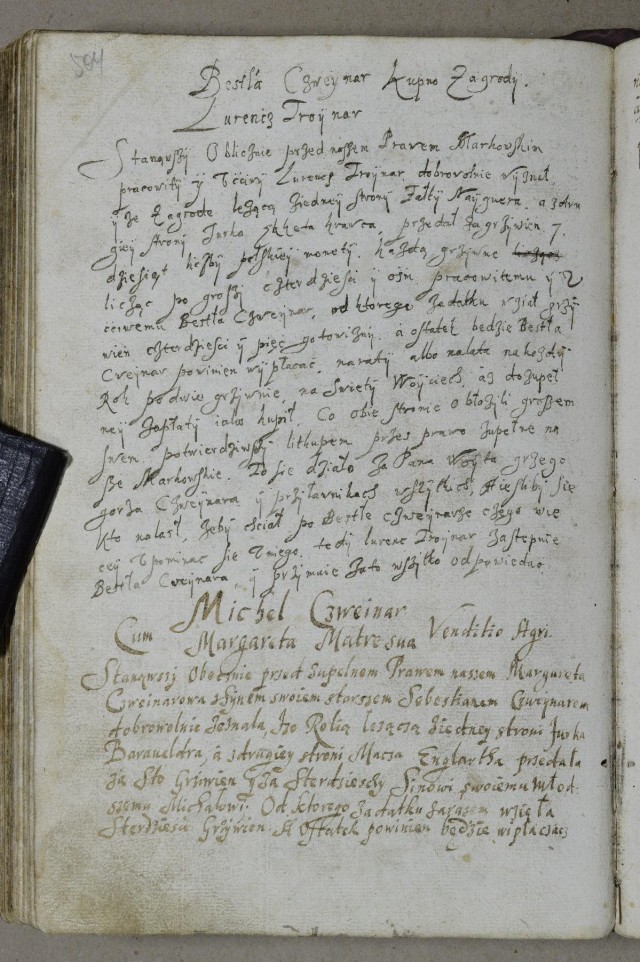 594
Bestla Czweynar Kupno Zagrody.
Lurencz Troynar
Stanąwszy Oblicznie przed naszem Prawem Markowskim
pracowity y Ućciwy Lurencz Troynar, dobrovolnie vyznał
yże Zagrode leżącą ziedney strony Falty Nayguera, a zdru
giey strony Jurka przedał za grzywien 7.
dziesiąt liczby polskiey monety. każdą grzywne
licząc po groszy czterdziesci y ośm. pracowitemu y U
ćciwemu Bestla Czweynar, od ktorego zadatku wziął grzy
wien czterdziesci y pięc gotowizny. a ostatek bedzie Bestla
Cweynar powinien wypłacać, na raty albo nalata nakożdy
Rok po dwie grzywnie, na Swiety Woyciech, aż do zupeł
ney zapłaty iako kupił. Co obie stronie obłożyli groszem
swem. potwierdziwszy lithupem przes prawo zupełne na
sze Markowskie. To sie działo za Pana Woyta grzego
gorza Czweynara y przyławnikach wszytkich, Jesliby sie
kto nalasł, żeby chciał po Bestle Czweynarze czego wie
cey Upominac sie Uniego. tedy lurenc Troynar Zastepuie
Bestla Cweynara, y przymuie zato wszytko odpowiedac.
Michel Czweinar
Cum Margareta Matre sua Venditio Agri.
Stanąwszy Obecznie przed zupelnem Prawem naszem Margareta
Czweinarowa zSynem swoiem starszem Sebestianem Czweynarem
dobrowolnie zeznala, Jzo Rolią lezącza ziedney stroni Jurka
a zdrugiey stroni, Macza Englartha przedała
za Sto Grziwien Sterdziesczy Sinowi swoiemu młod
szemu Michałowi: Od ktorego zadatku zarazem wzięła
Sterdziesci Grziwien. A Ostatek powinien będzie wiplaczacz